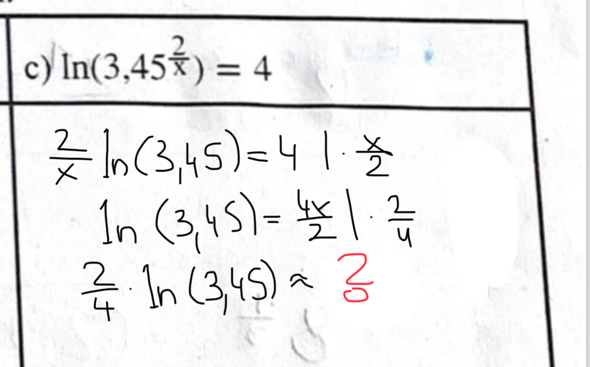 c) ln(3,45^(2/x)) = 4
2/x ln(3,45) = 4 | · x/2
ln (3,45) = 4x/2 | · 2/4
2/4 · ln (3,45) ≈